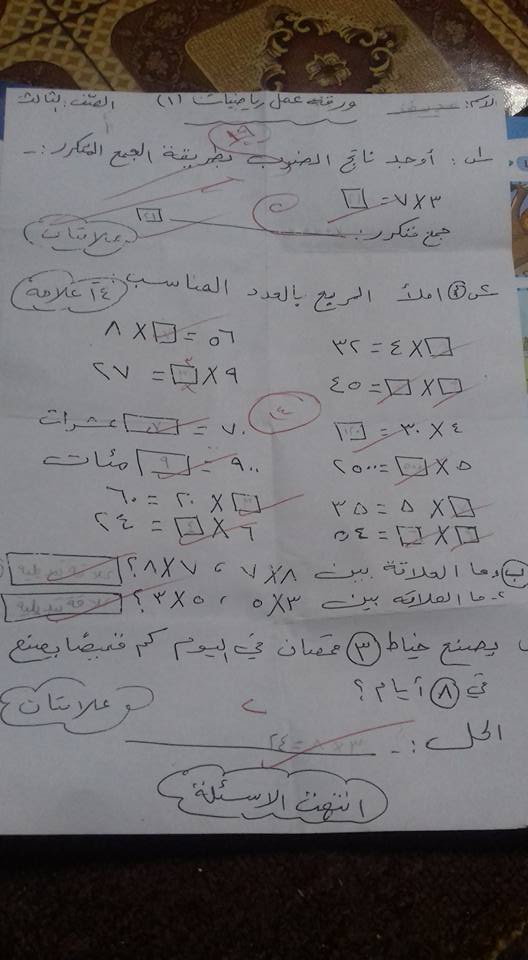 الاسم: ورقة عمل رياضيات (١) الصف: الثالث
١٩
س١: أوجد ناتج الضرب بطريقة الجمع المتكرر :-
٣ × ٧ = ٢١
جمع متكرر: ٢١ علامتان
س٢ املأ المربع بالعدد المناسب: ١٤ علامة
□ × ٤ = ٣٢ ٥٦ = □ × ٨
□ × □ = ٤٥ ٩ × □ = ٢٧
٤ × ٣٠ = ١٢٠ ٧٠ = ٧ عشرات
٥ × ٥٠٠ = ٢٥٠٠ ٩٠٠ = ٩ مئات
□ × ٥ = ٣٥ □ × ٢٠ = ٦٠
□ × □ = ٥٤ ٦ × ٤ = ٢٤
ب) ما العلاقة بين ٨ × ٧ ، ٧ × ٨ ؟
٢- ما العلاقة بين ٣ × ٥ ، ٥ × ٣ ؟ علاقة تبديلية
يصنع خياط ٣ قمصان في اليوم كم قميصًا يصنع
في ٨ أيام ؟ علامتان
الحل :- ٣ × ٨ = ٢٤
انتهت الاسئلة